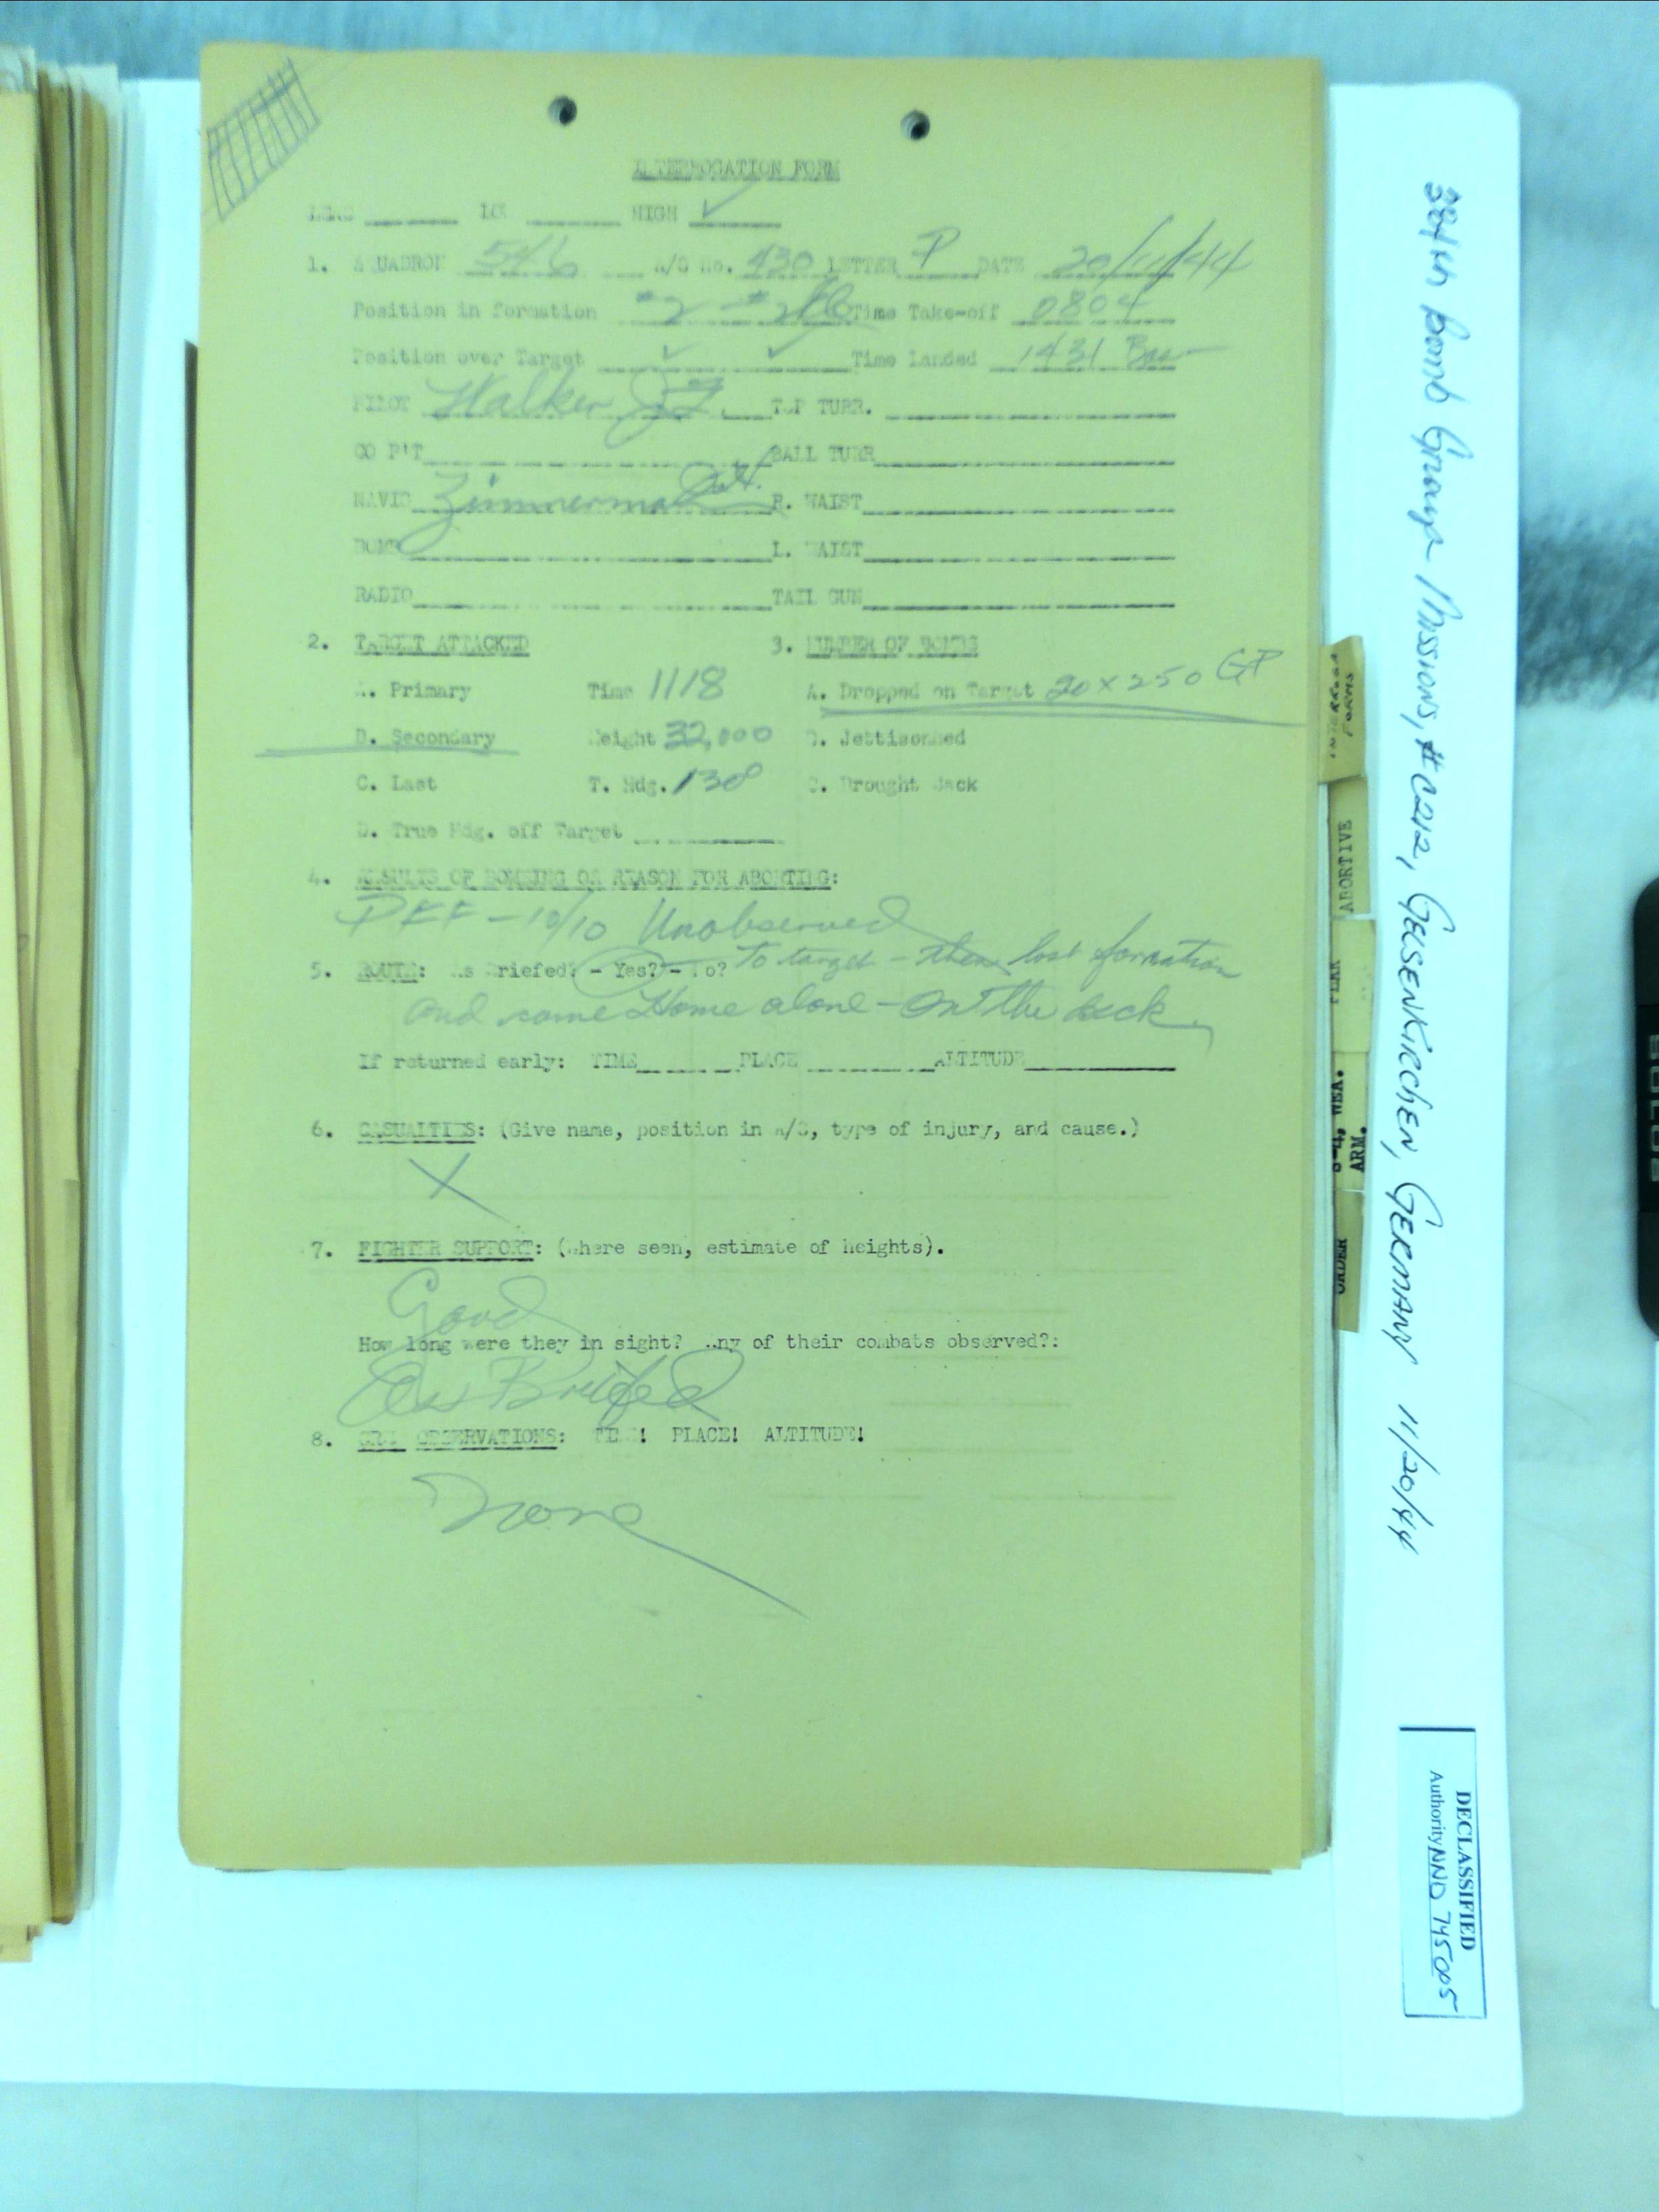 INTERROGATION FORM
LEAD LOW HIGH ✓
1. SQUADRON 546 A/C No. 430 LETTER P DATE 20/11/44
Position in formation #2 - #2 Time Take-off 0804
Position over Target ✓ ✓ Time Landed 1431
PILOT Walker TOP TURR.
CO P'T BALL TURR
NAVIG Zimmerman R. WAIST
BOMB L. WAIST
RADIO TAIL GUN
2. TARGET ATTACKED 3. NUMBER OF BOMBS
A. Primary Time 1118 A. Dropped on Target 20 x 250 GP
B. Secondary Height 32,000 B. Jettisonned
C. Last T. Hdg. 130° C. Brought Back
D. True Hdg. off Target
4. RESULTS OF BOMBING OR REASON FOR ABORTING:
PFF - 10/10 Unobserved
5. ROUTE: As Briefed? - Yes? - No? To target - then lost formation
and came Home alone - on the deck
If returned early: TIME PLACE ALTITUDE
6. CASUALTIES: (Give name, position in A/C, type of injury, and cause.)
X
7. FIGHTER SUPPORT: (Where seen, estimate of heights).
Good
How long were they in sight? Any of their combats observed?:
As Briefed
8. OBSERVATIONS: TIME! PLACE! ALTITUDE!
None
INTERROGA
FORMS
ABORTIVE
FLAK
S-4, WEA.
ARM.
ORDER
384th Bomb Group Missions, #C212, GELSENKIRCHEN, GERMANY 11/20/44
DECLASSIFIED
Authority NND 745005